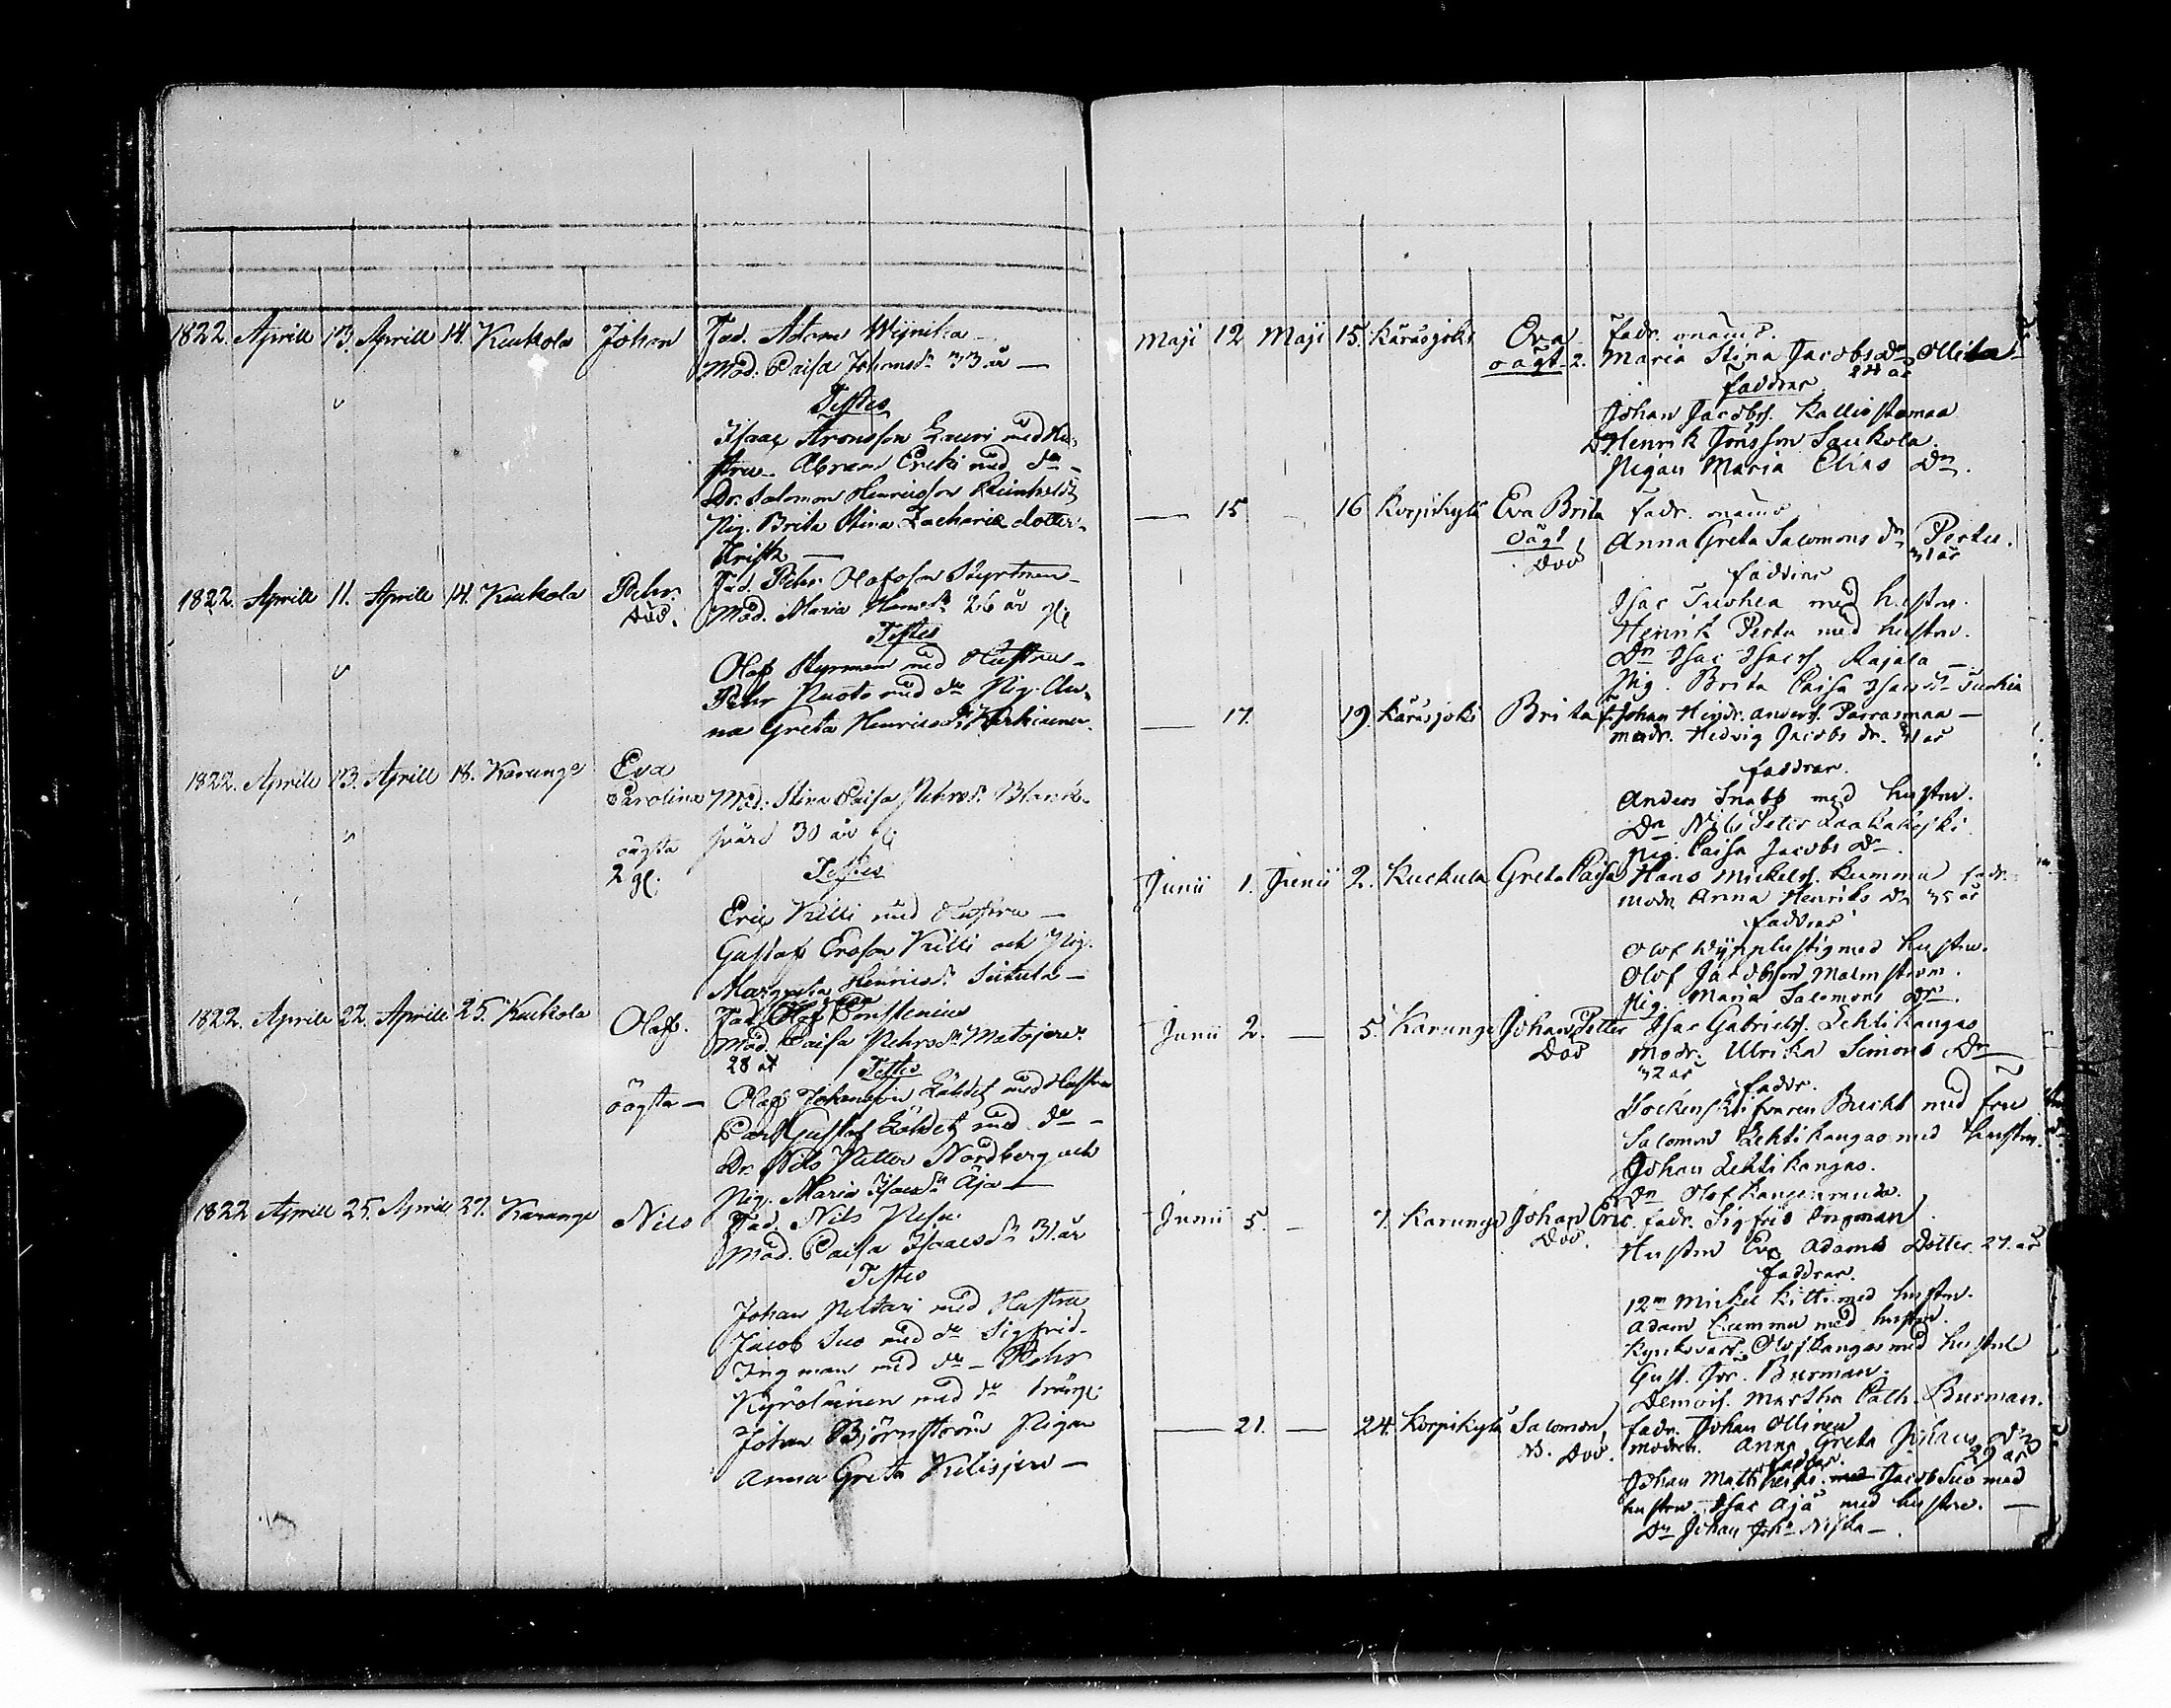 1822. Aprill 13. Aprill 14. Kuckola Johan Fad. Adam Wijnika
Mod. Caisa Johansdr 33 år —
Testes
Isaac Aronsson Lauri med Hu-
stru. Abram Ereki med do
Dr. Salomon Henricsson
Pig. Brita Stina Zachariæ dotter
1822. Aprill 11. Aprill 14. Kuckola Pehr. Fad. Pehr Olofsson Styrman
Död. Mod. Maria Hansdr 26 år
Testes
Olof Styrman med Hustru
Pehr Ruoto med do Pig. An-
na Greta Henricsdr
1822. Aprill 13. Aprill 18. Karungi Eva
Carolina Mod. Stina Caisa Pehrsdr Blank-
oägta svärd 30 år
2 g.
Testes
Eric Killi med Hustru —
Gustaf Ersson Killi och Pig.
Margreta Henricsdr —
1822. Aprill 22. Aprill 25. Kuckola Olof. Fad. Olof
Mod. Caisa Pehrsdr Matojerv
28 år Testes
oägta — Olof Johansson med Hustru
Carl Gustaf med do
Dr. Nils Petter Nordberg och
Pig. Maria Isacsdr Äja —
1822 Aprill 25. Aprill 27. Karungi Nils Fad. Nils
Mod. Caisa Isaacsdr 31 år
Testes
Johan Peltari med Hustru
Jacob Suo med do Sigfrid
Ingman med do — Pehr
Kyröläinen med do dräng.
Johan Björnström Pigan
Anna Greta Kilisjerv —
Maji 12 Maji 15. Karasjoki Eva fadr. onämd.
oägt. 2. Maria Stina Jacobs Dr Ollila
24 år
faddrar
Johan Jacobss. Kalliostamaa
Dr Henrik Jönsson Laukola.
Pigan Maria Elias Dr.
— 15 — 16 Korpikylä Eva Brita fadr. onämd
oägt Anna Greta Salomons Dr Pertu.
Död 31 år
faddrar
Isac Tuohea med hustru.
Henrik Pertu med hustru.
Dr Isac Isacss. Rajala —
Pig. Brita Caisa Isacsdr Tuohea
— 17. 19. Karasjoki Brita f. Johan Heindr. Anders. Parramaa —
modr. Hedvig Jacobs dr. 31 år
faddrar.
Anders Snabb med hustru.
Dr Nils Peter Laakakoski
Pig. Caisa Jacobs Dr.
Junii 1. Junii 2. Kuckula Greta Caisa Hans Mickelss. Kummu fadr.
modr. Anna Henriks Dr 35 år
faddrar
Olof med hustru.
Olof Jacobsson Malmström.
Pig. Maria Salomons Dr.
Junii 2. — 5. Karungi Johan Petter Isac Gabrielss. Lehtikangas
Död modr. Ulrika Simons Dr
32 år
faddr.
Sockenskrifvaren Bucht med fru
Salomon Lehtikangas med hustru.
Johan Lehtikangas.
Dr Olof
Junii 5. — 7. Karungi Johan Eric. fadr. Sigfrid Ingman
Död. Hustru Eva Adams Dotter. 27. år
faddrar.
12m Mickel Kitti med hustru.
Adam Kummu med hustru.
Kyrkvärd. Olof Kangas med hustru
Gust. Joh. Burman.
Demois. Martha Cath. Burman.
— 21. — 24. Korpikylä Salomon fadr. Johan Ollinen
Död. modren. Anna Greta Johans Dr
29 år
faddrar.
Johan Matt Jacob Suo med
hustru Isac Äjä med hustru. —
Dr Johan Joh. Niska —